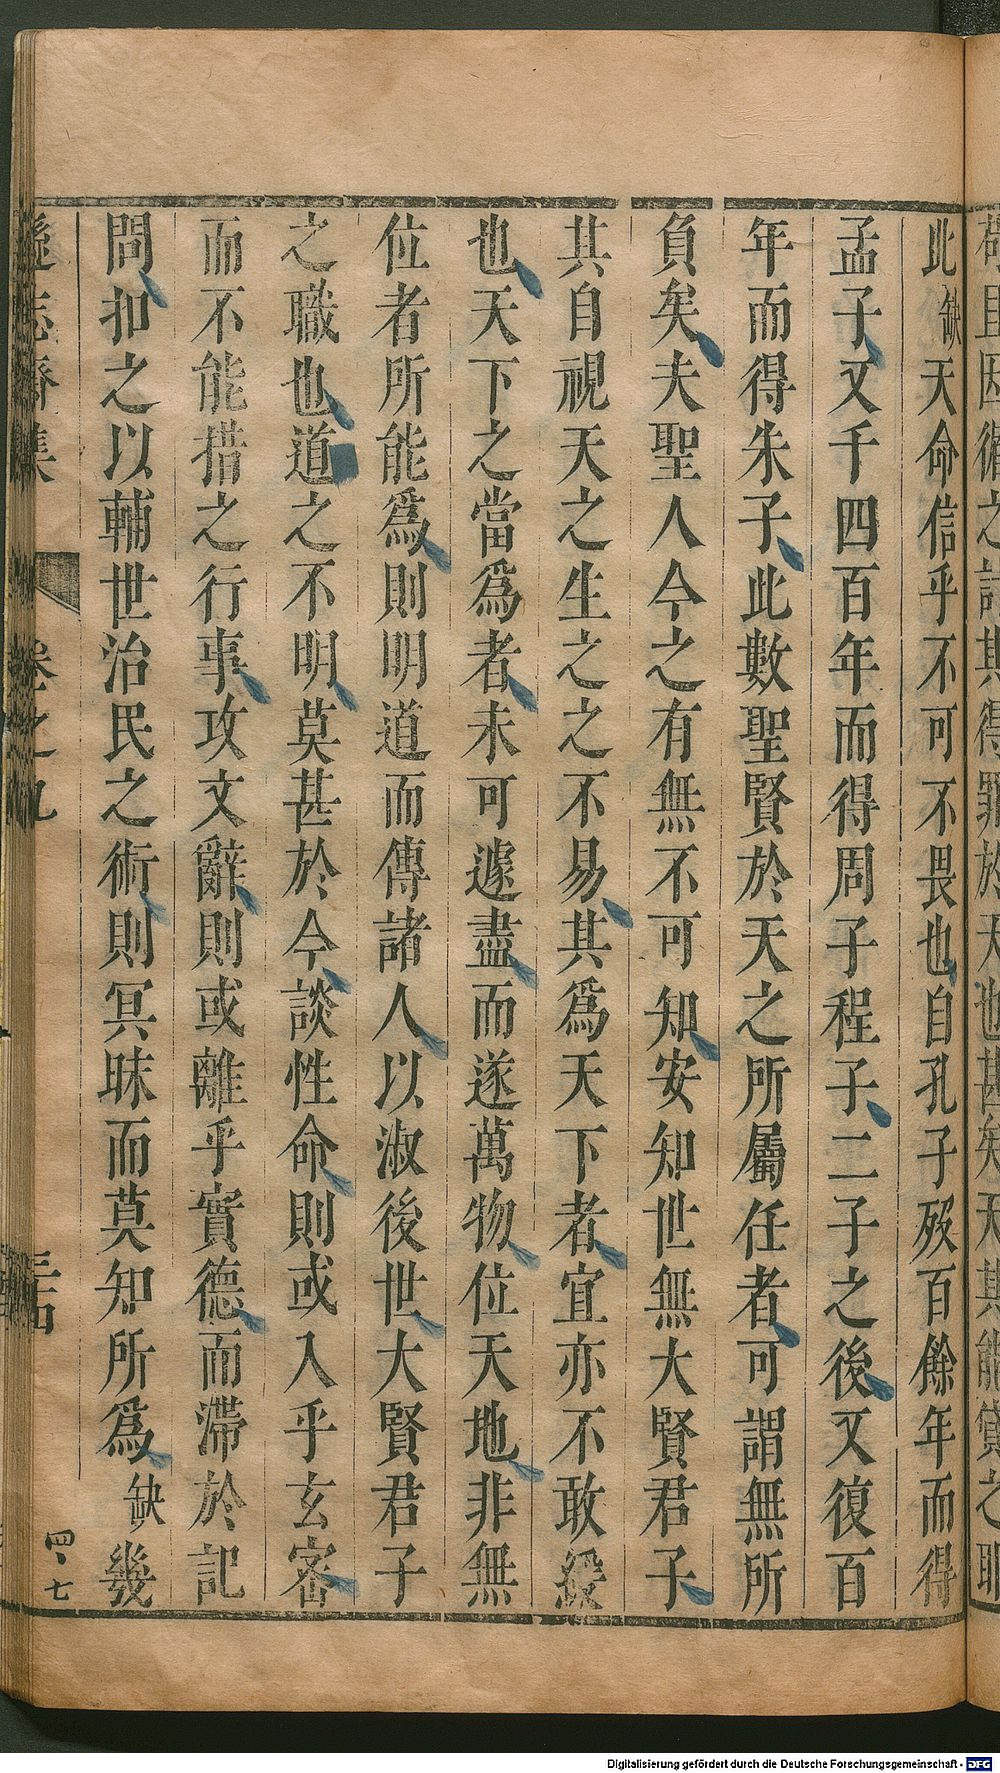 此缺天命信乎不可不畏也自孔子歿百餘年而得
孟子又千四百年而得周子程子二子之後又復百
年而得朱子此數聖賢於天之所屬任者可謂無所
負矣夫聖人今之有無不可知安知世無大賢君子
其自視天之生之之不易其為天下者宜亦不敢緩
也天下之當為者未可遽盡而遂萬物位天地非無
位者所能為則明道而傳諸人以淑後世大賢君子
之職也道之不明莫甚於今談性命則或入乎玄密
而不能措之行事攻文辭則或離乎實德而滯於記
問扣之以輔世治民之術則冥昧而莫知所為缺幾
遜志齋集 卷之九
四、七
Digitalisierung gefördert durch die Deutsche Forschungsgemeinschaft - DFG